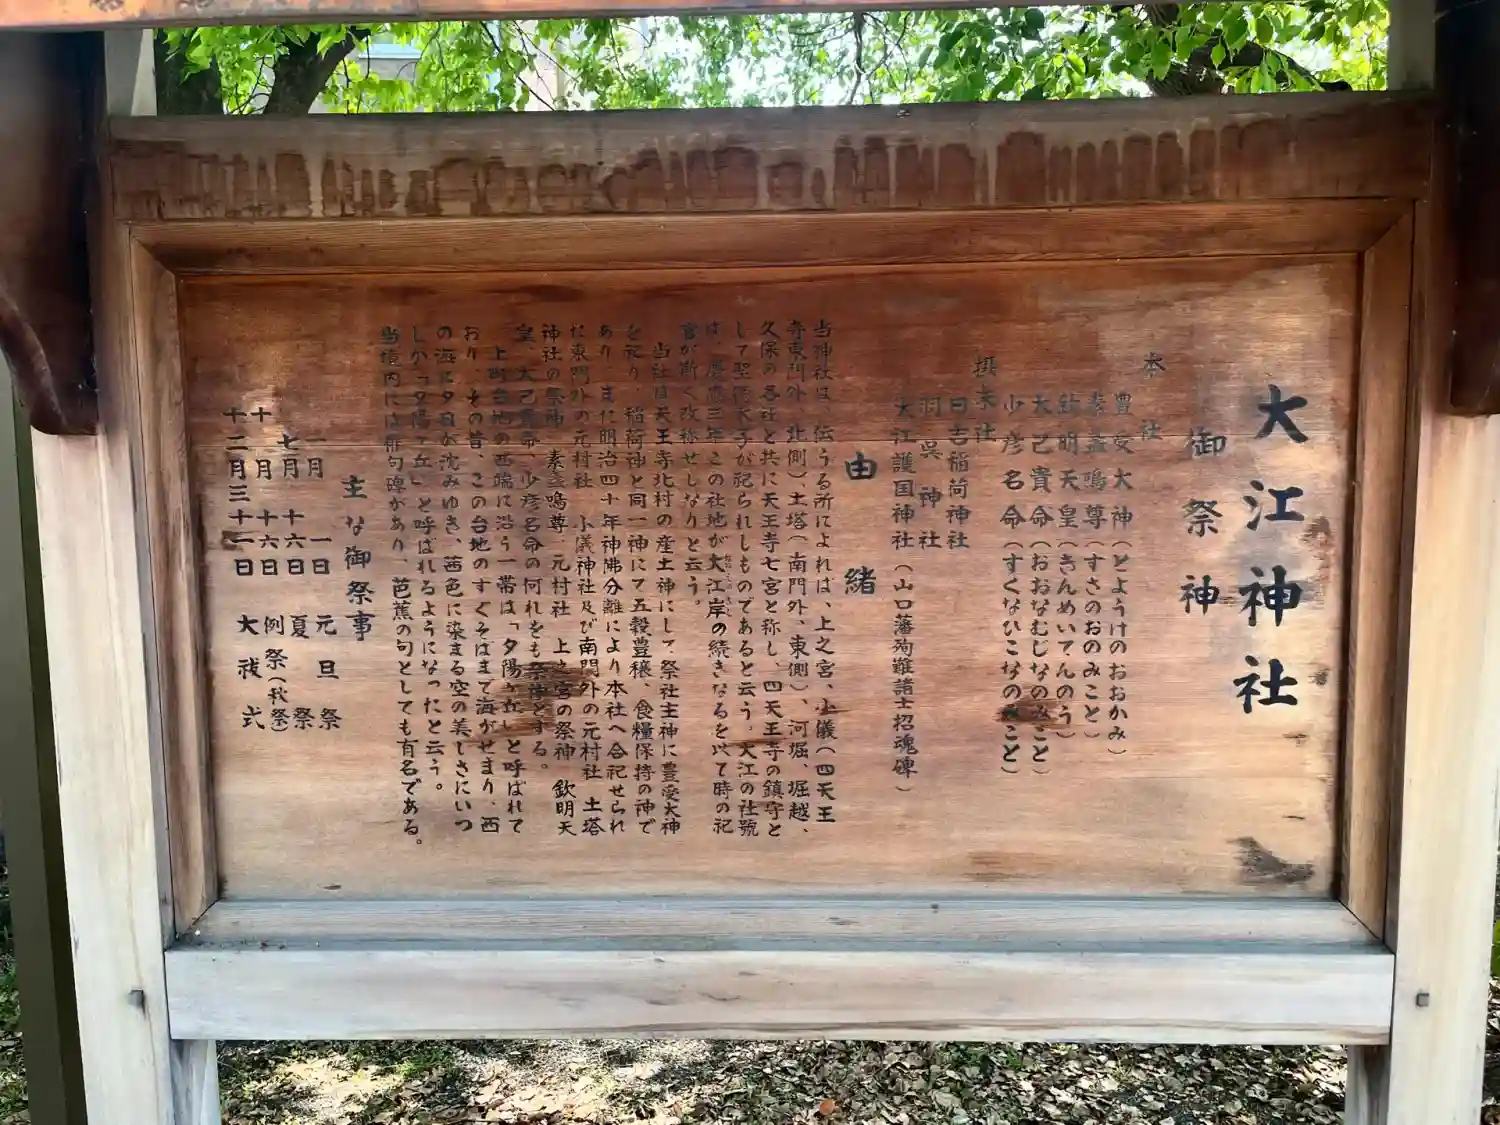 大江神社
御祭神
本社
豊受大神（とようけのおおかみ）
素盞鳴尊（すさのおのみこと）
欽明天皇（きんめいてんのう）
大己貴命（おおなむじなのみこと）
少彦名命（すくなひこなのみこと）
摂末社
日吉稲荷神社
羽呉神社
大江護国神社（山口藩殉難諸士招魂碑）
由緒
当神社は、伝うる所によれば、上之宮、小儀（四天王
寺東門外、北側）、土塔（南門外、東側）、河堀、堀越、
久保の各社と共に天王寺七宮と称し、四天王寺の鎮守と
して聖徳太子が祀られしものであると云う。大江の社號
は、慶應三年この社地が大江岸の続きなるを以て時の祀
官が斯く改称せしなりと云う。
当社は天王寺北村の産土神にして祭社主神に豊受大神
を祝り、稲荷神と同一神にて五穀豊穣、食糧保持の神で
あり、また明治四十年神佛分離により本社へ合祀せられ
た東門外の元村社 小儀神社及び南門外の元村社 土塔
神社の祭神 素盞鳴尊、元村社 上之宮の祭神 欽明天
皇、大己貴命、少彦名命の何れをも祭神とする。
上町台地の西端に沿う一帯は「夕陽ヶ丘」と呼ばれて
おり、その昔、この台地のすぐそばまで海がせまり、西
の海に夕日が沈みゆき、茜色に染まる空の美しさにいつ
しか「夕陽ヶ丘」と呼ばれるようになったと云う。
当境内には俳句碑があり、芭蕉の句としても有名である。
主な御祭事
一月 一日 元旦祭
七月 十六日 夏祭
十月 十六日 例祭（秋祭）
十二月三十一日 大祓式